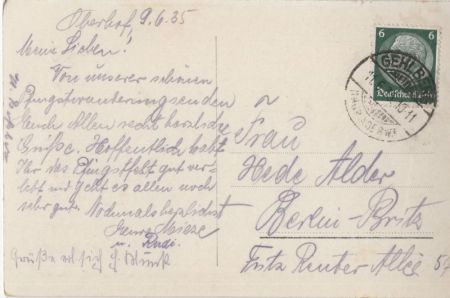 Oberhof, 9.6.35
Meine Lieben!
Von unserer schönen
Pfingstwanderung senden
Euch Allen recht herzliche
Grüße. Hoffentlich habt
Ihr das Pfingstfest gut ver-
lebt und geht es allen noch
sehr gut. Nochmals herzlichst
Mieze
u. Rudi.
Grüße
6
6
Deutsches Reich
GEHLBERG
Frau
Hede Alder
Berlin-Britz
Fritz Reuter Allee